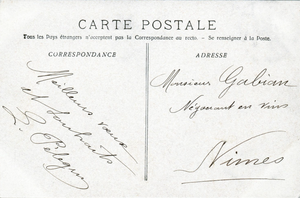 CARTE POSTALE
Tous les Pays étrangers n'acceptent pas la Correspondance au recto. — Se renseigner à la Poste.
CORRESPONDANCE
Meilleurs vœux
et souhaits
ADRESSE
Monsieur Gabian
Négociant en vins
Nîmes